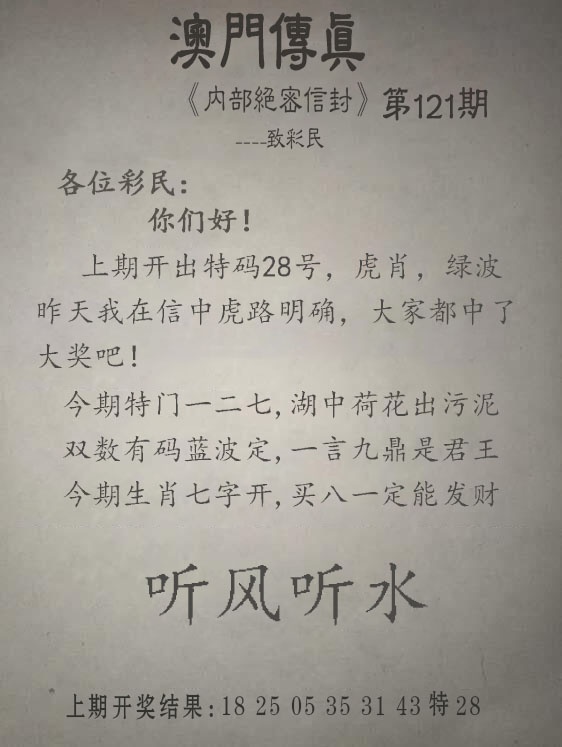 澳門傳真
《内部絕密信封》第121期
----致彩民
各位彩民：
你们好！
上期开出特码28号，虎肖，绿波
昨天我在信中虎路明确，大家都中了
大奖吧！
今期特门一二七,湖中荷花出污泥
双数有码蓝波定,一言九鼎是君王
今期生肖七字开,买八一定能发财
听风听水
上期开奖结果:18 25 05 35 31 43 特 28